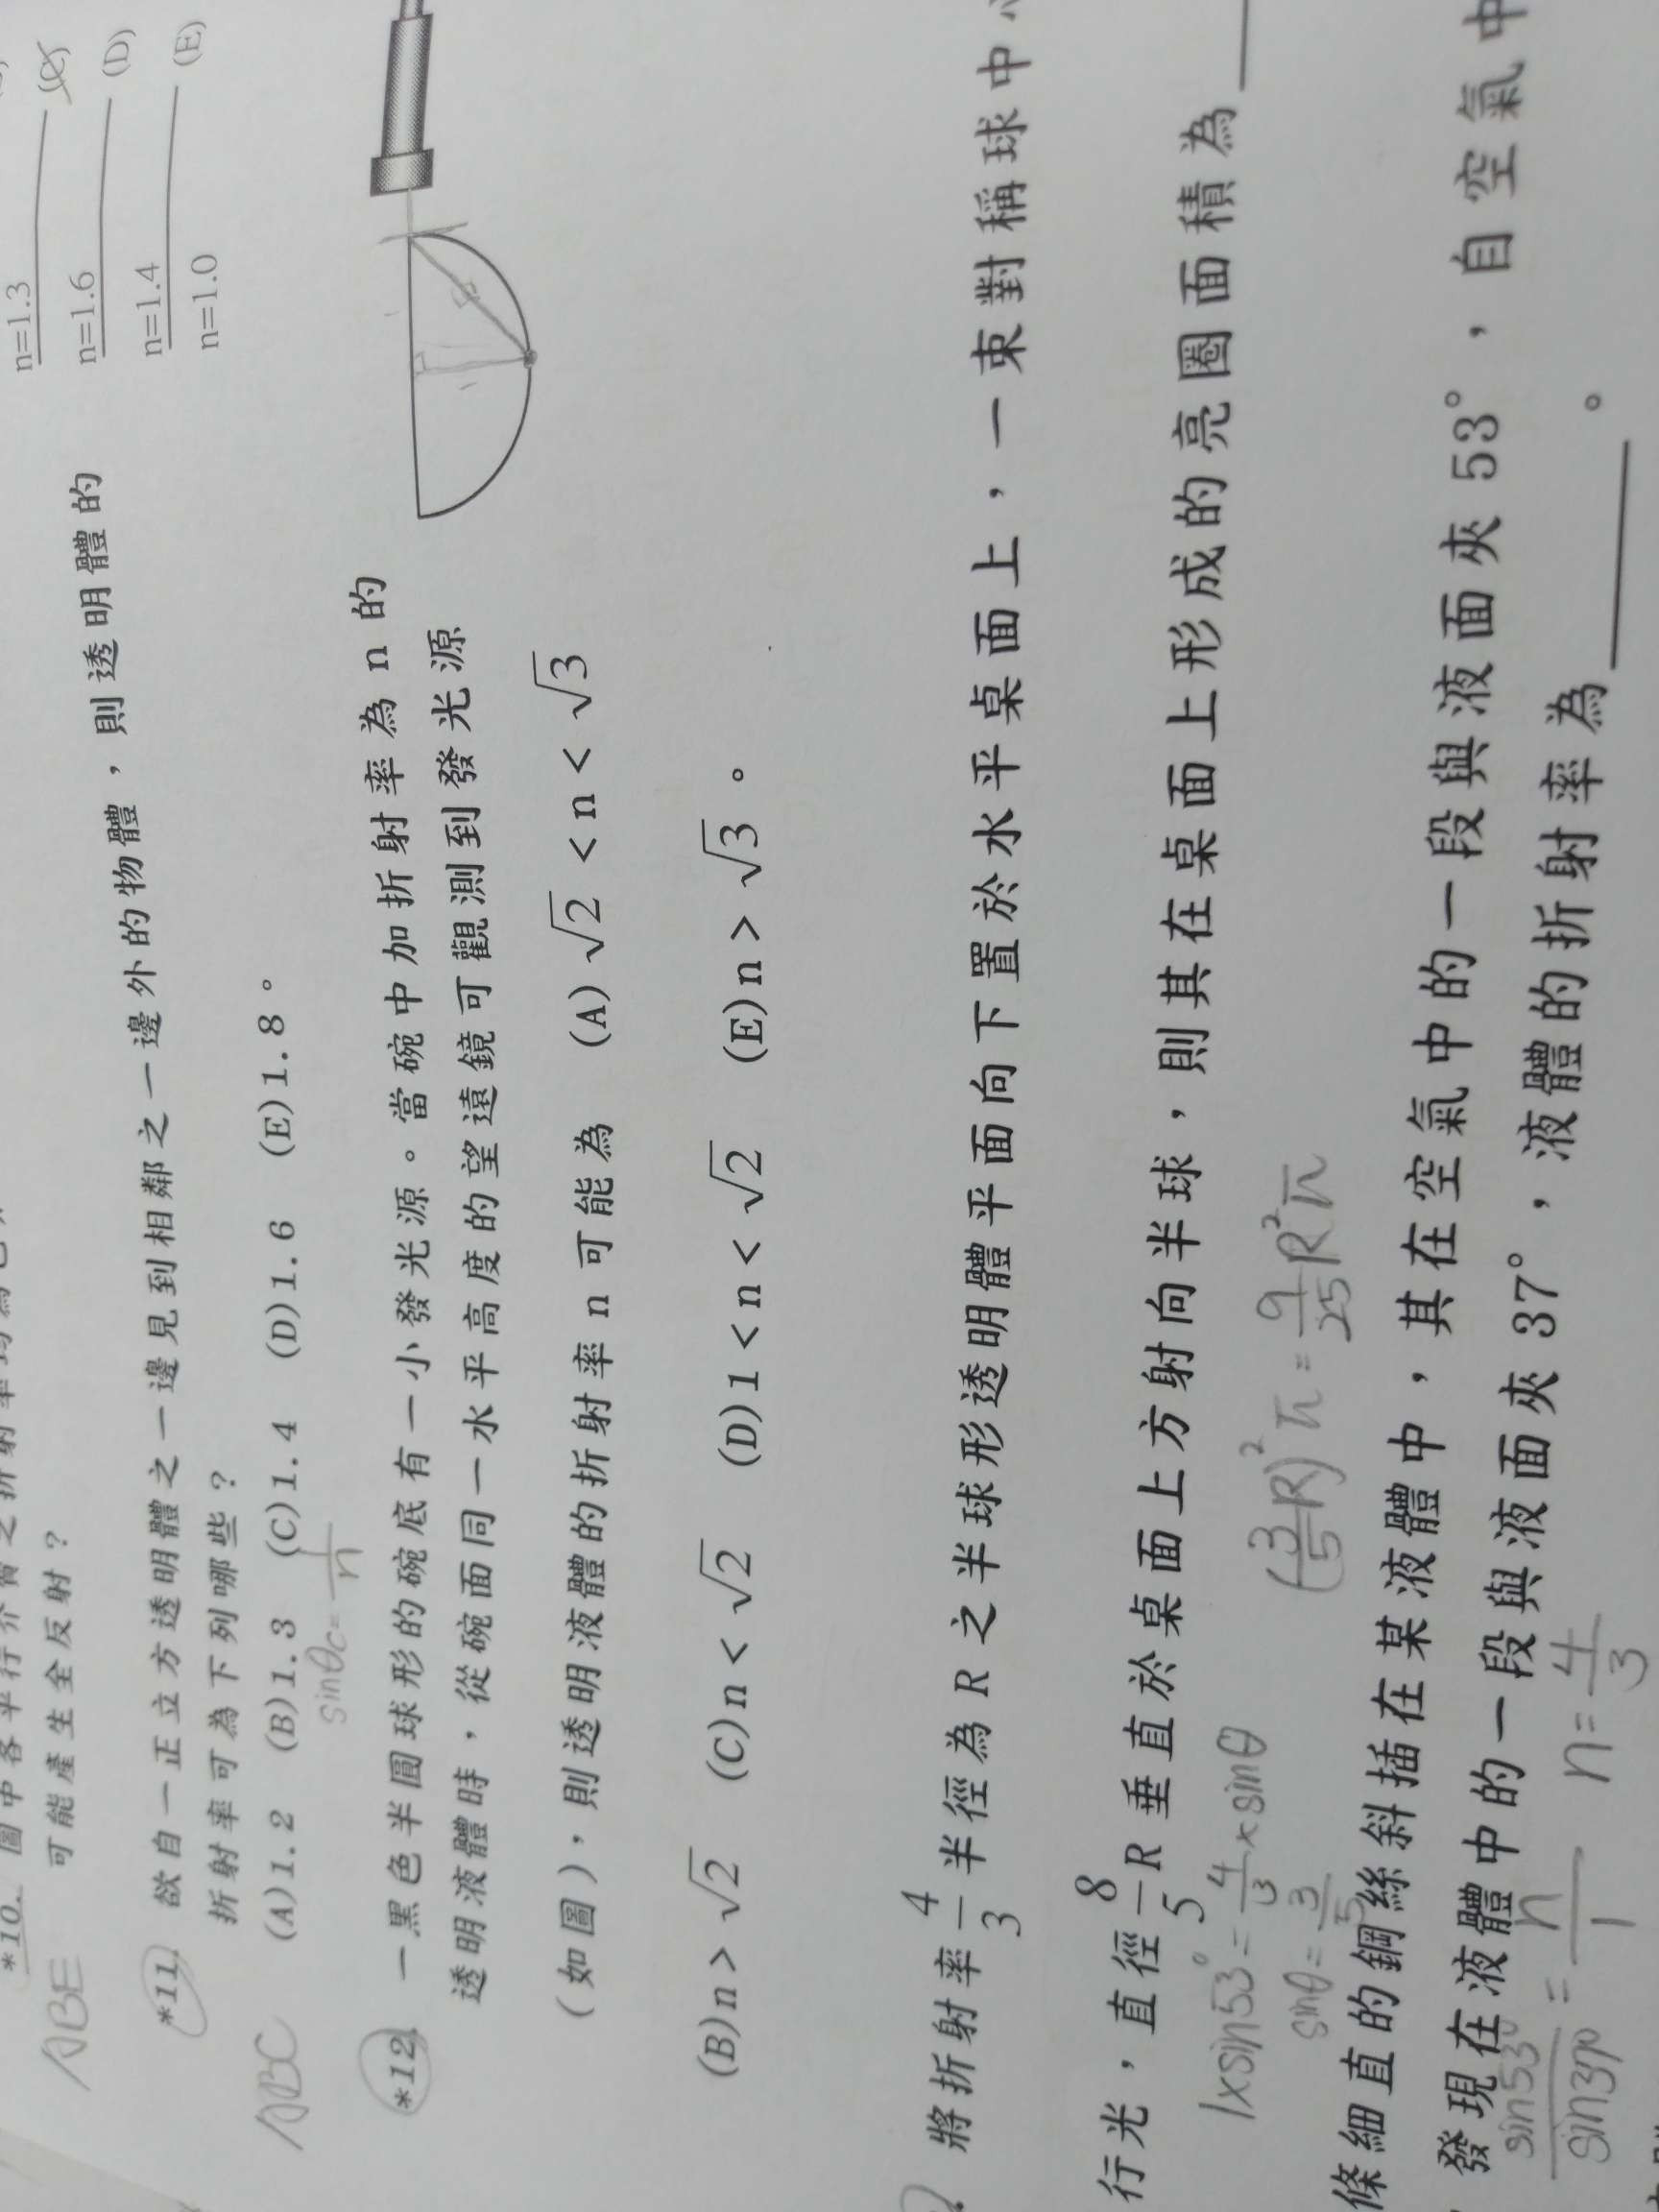 n=1.3
(C)
n=1.6
(D)
n=1.4
(E)
n=1.0
*10. 圖中各平行介質之折射率均為已
可能產生全反射？
ABE
*11. 欲自一正立方透明體之一邊見到相鄰之一邊外的物體，則透明體的
折射率可為下列哪些？
(A)1.2 (B)1.3 (C)1.4 (D)1.6 (E)1.8。
ABC
sinθc=1/n
*12. 一黑色半圓球形的碗底有一小發光源。當碗中加折射率為 n 的
透明液體時，從碗面同一水平高度的望遠鏡可觀測到發光源
（如圖），則透明液體的折射率 n 可能為 (A)√2<n<√3
(B)n>√2 (C)n<√2 (D)1<n<√2 (E)n>√3。
將折射率 4/3 半徑為 R 之半球形透明體平面向下置於水平桌面上，一束對稱球中心
行光，直徑 8/5 R 垂直於桌面上方射向半球，則其在桌面上形成的亮圈面積為
1×sin53°=4/3×sinθ
sinθ=3/5
(3/5 R)²π=9/25 R²π
條細直的鋼絲斜插在某液體中，其在空氣中的一段與液面夾 53°，自空氣中
發現在液體中的一段與液面夾 37°，液體的折射率為 。
sin53°/sin37°=n/1 n=4/3